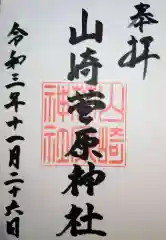 奉拝
山崎菅原神社
山崎
菅原
神社
令和三年十一月二十六日